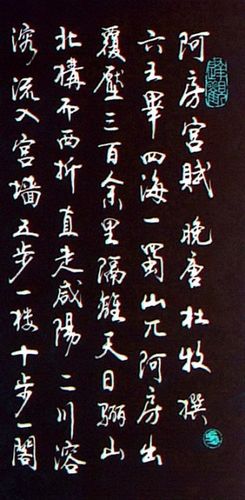 阿房宫賦 晚唐 杜牧 撰
六王畢四海一蜀山兀阿房出
覆壓三百余里隔離天日骊山
北構而西折直走咸陽二川溶
溶流入宫墙五步一楼十步一閣